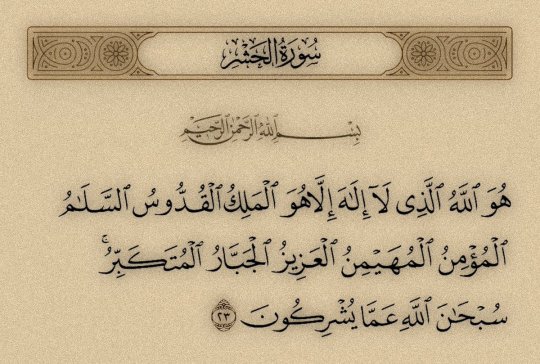 سُورَةُ الحَشْرِ
بِسْمِ ٱللَّهِ ٱلرَّحْمَٰنِ ٱلرَّحِيمِ
هُوَ ٱللَّهُ ٱلَّذِى لَآ إِلَٰهَ إِلَّا هُوَ ٱلْمَلِكُ ٱلْقُدُّوسُ ٱلسَّلَٰمُ
ٱلْمُؤْمِنُ ٱلْمُهَيْمِنُ ٱلْعَزِيزُ ٱلْجَبَّارُ ٱلْمُتَكَبِّرُ ۚ
سُبْحَٰنَ ٱللَّهِ عَمَّا يُشْرِكُونَ ٢٣